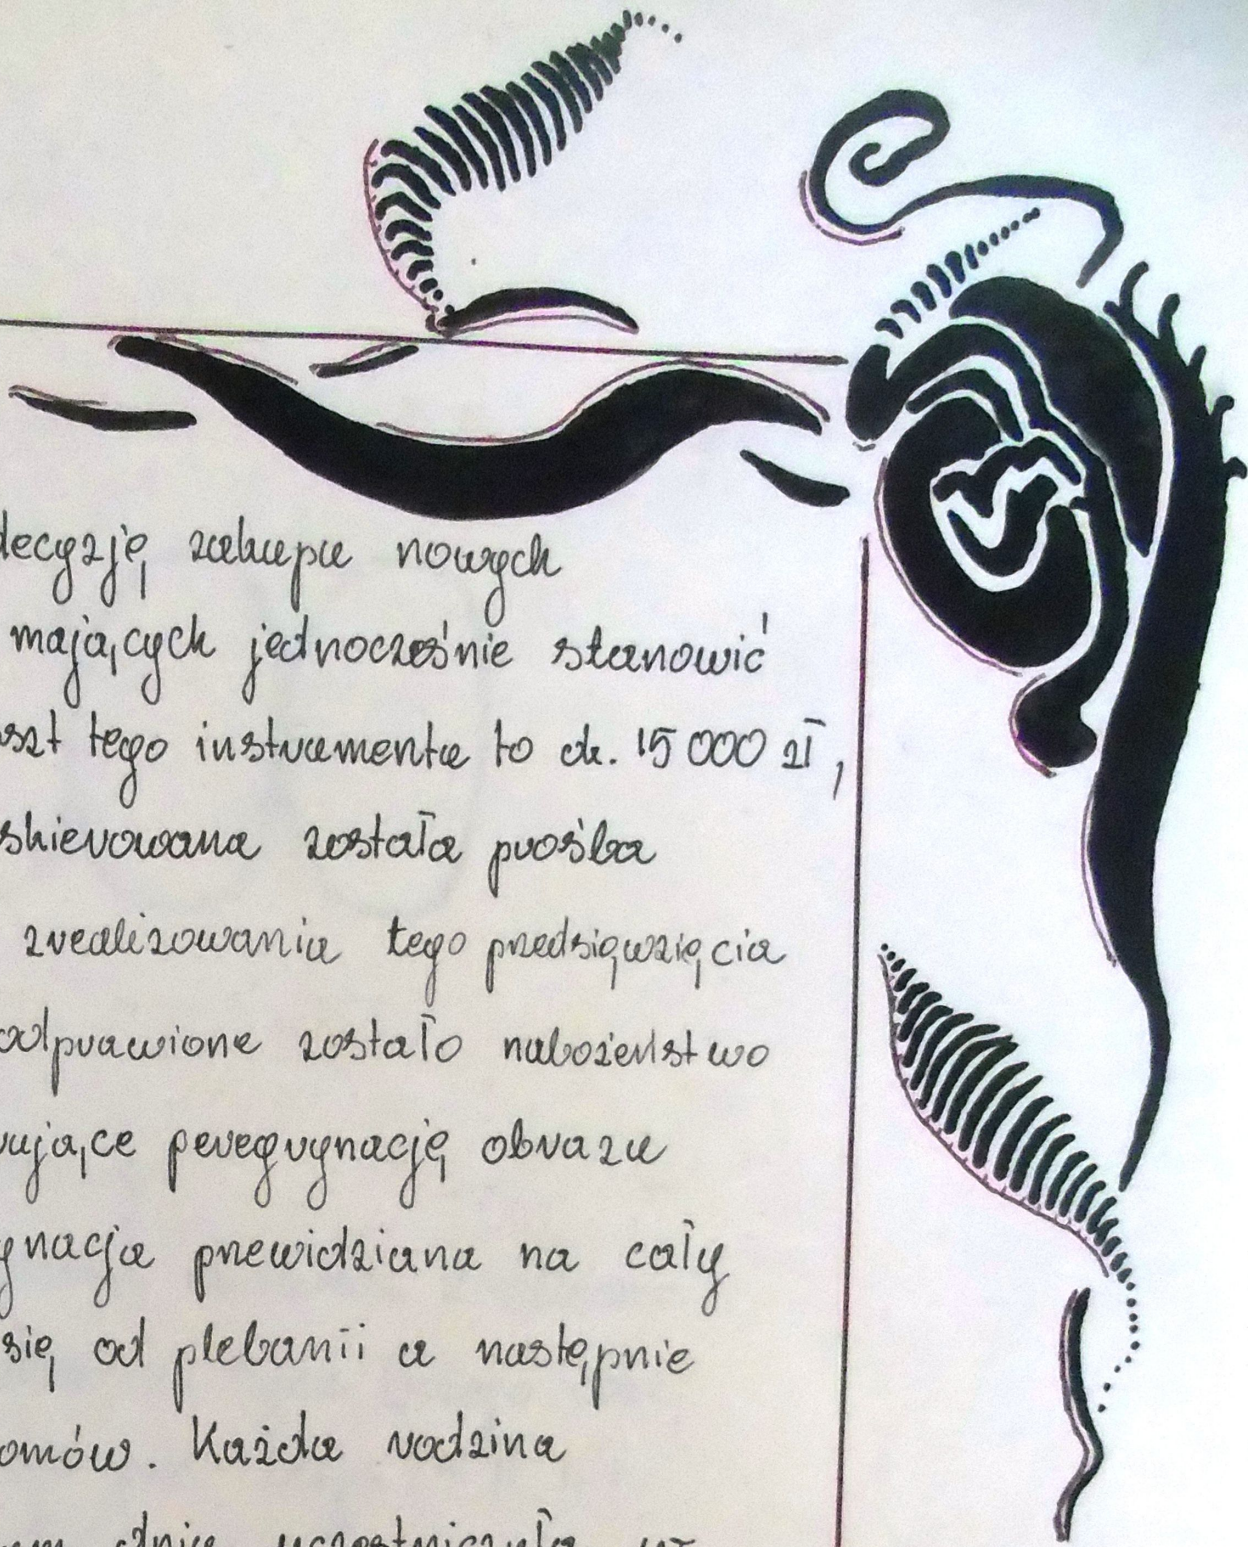 decyzję zakupu nowych
mających jednocześnie stanowić
szt tego instrumentu to ok. 15 000 zł,
skierowana została prośba
zrealizowania tego przedsięwzięcia
odprawione zostało nabożeństwo
ujące peregrynację obrazu
gnacja przewidziana na cały
się od plebanii a następnie
omów. Każda rodzina
dniu uczestniczyła w